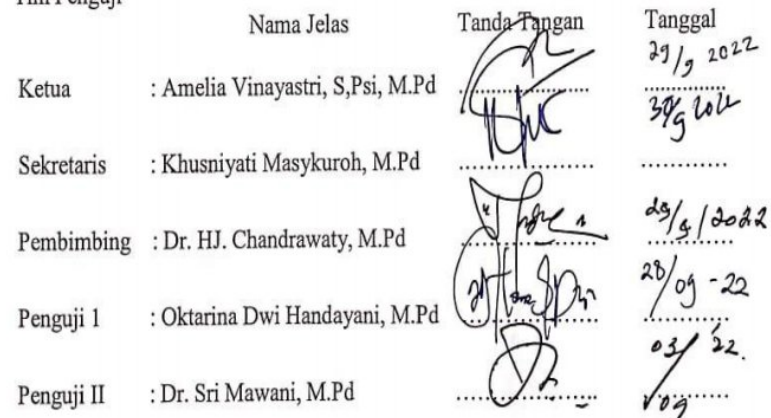 Nama Jelas Tanda Tangan Tanggal
29/9 2022
Ketua : Amelia Vinayastri, S,Psi, M.Pd ....................
30/9 2022
Sekretaris : Khusniyati Masykuroh, M.Pd ....................
Pembimbing : Dr. HJ. Chandrawaty, M.Pd .................... /2022
28/09 - 22
Penguji 1 : Oktarina Dwi Handayani, M.Pd ....................
03/09 '22.
Penguji II : Dr. Sri Mawani, M.Pd ....................